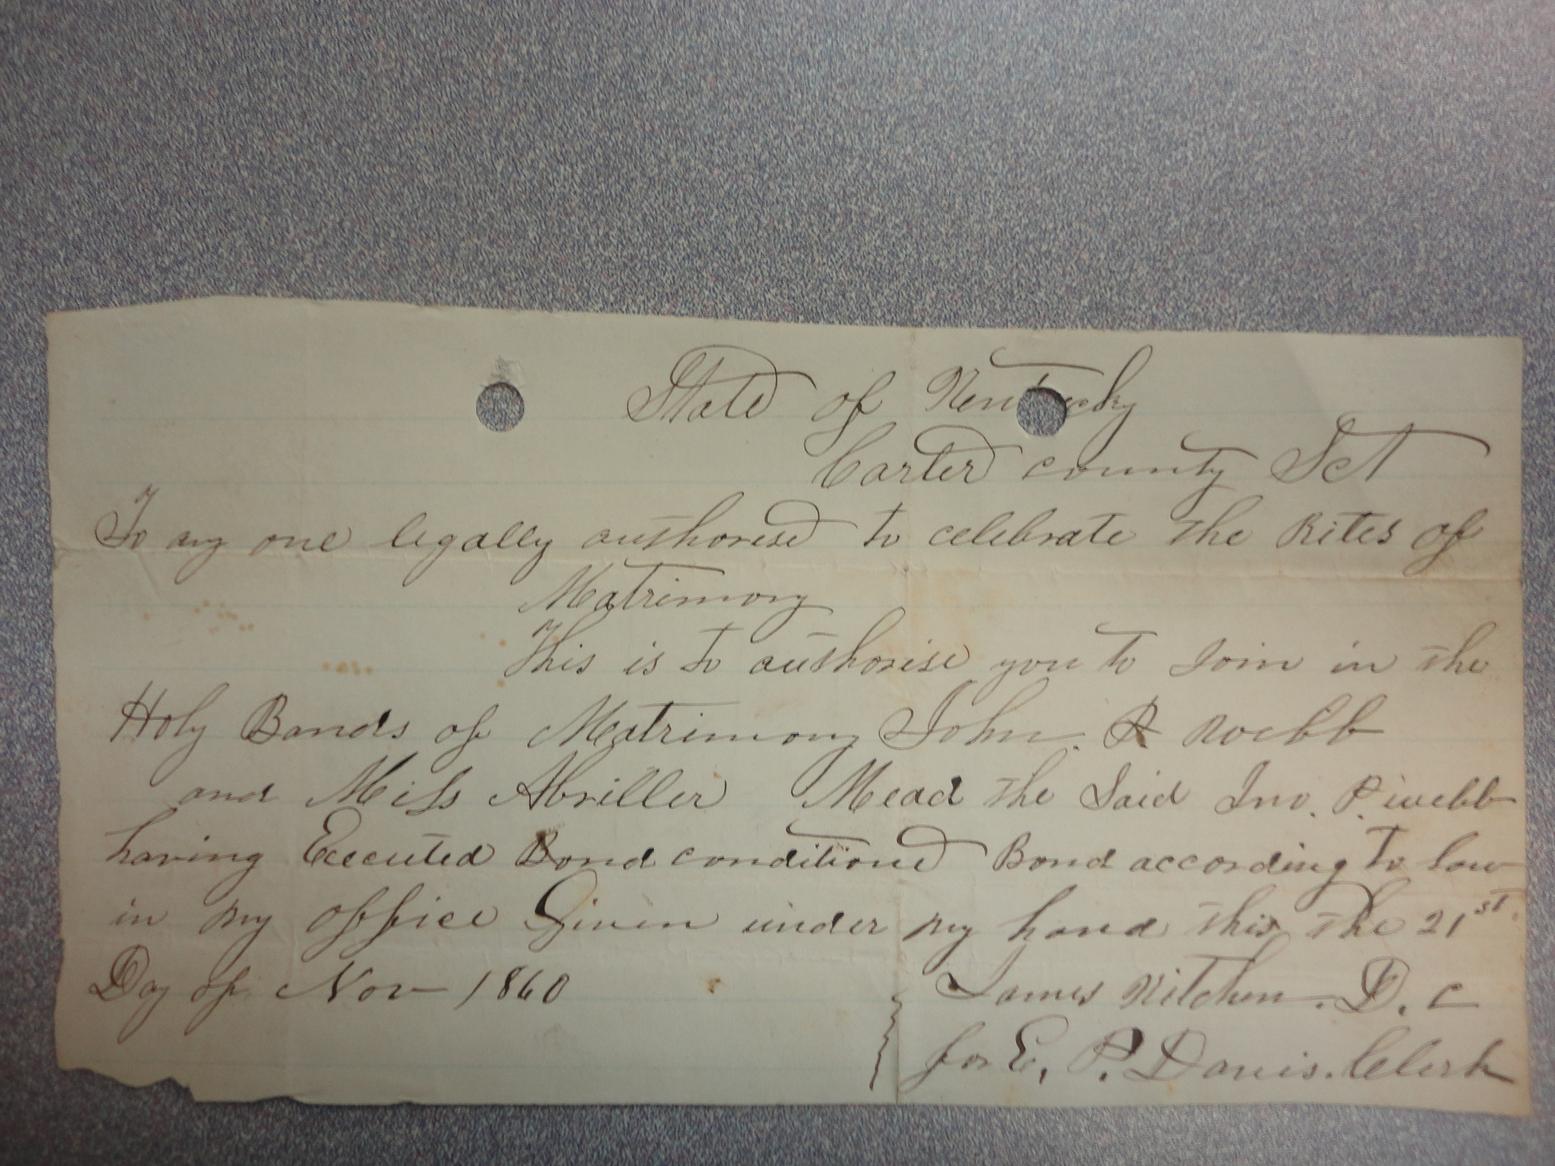 State of Kentucky
Carter county Sct
To any one legally authorised to celebrate the Rites of
Matrimony
This is to authorise you to Join in the
Holy Bands of Matrimony John. P Webb
and Miss Abriller Mead the Said Jno. P. webb
having Executed Bond conditioned Bond according to law
in my office Given under my hand this the 21st
Day of Nov 1860 James Kitchen. D. C
for E. P. Davis. Clerk